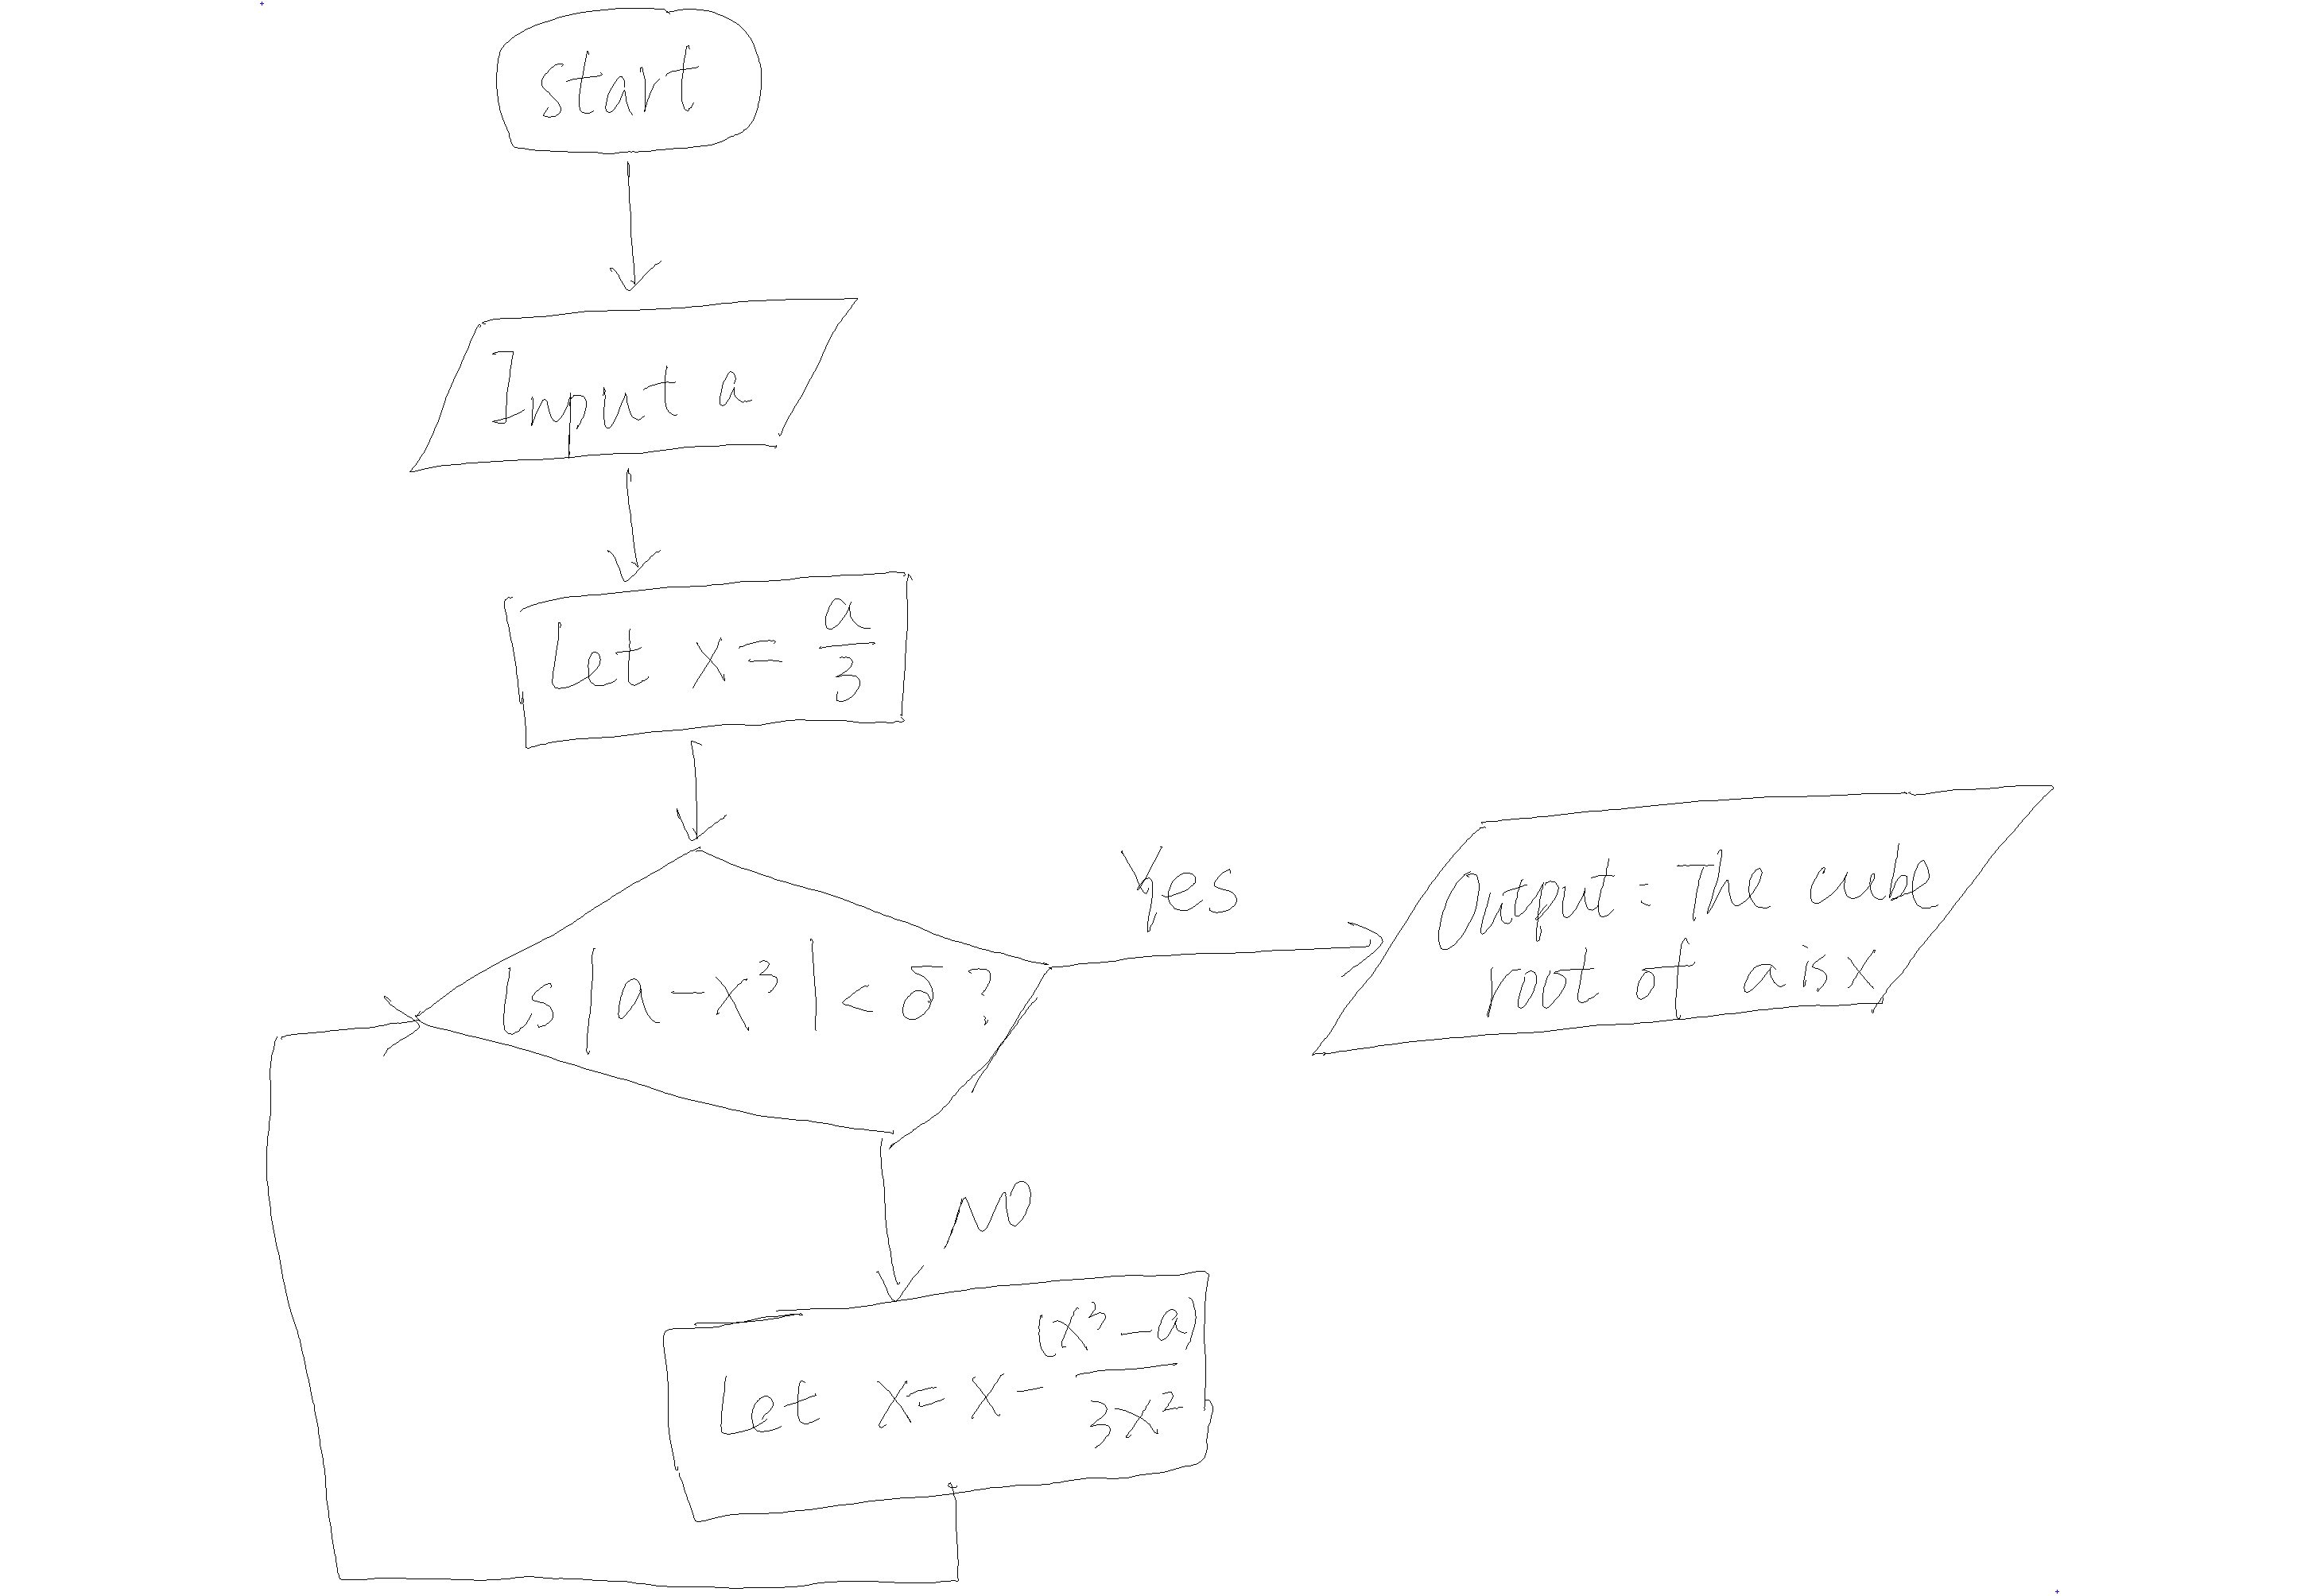 start
Input a
Let x = a/3
Is |a - x³| < δ?
Yes
Output: The cube
root of a is x
NO
Let x = x - (x³ - a)/3x²